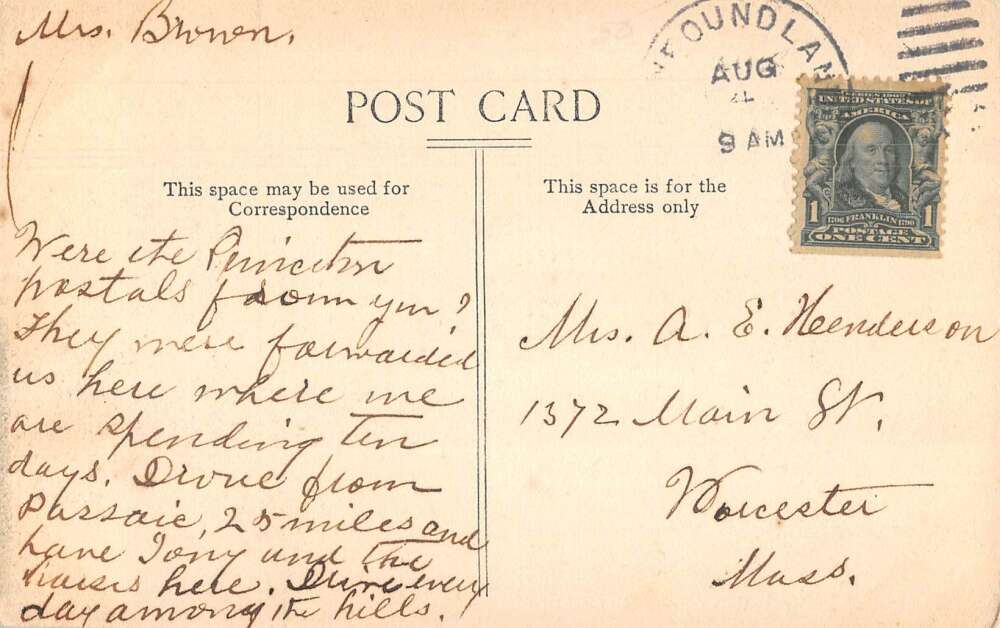 Mrs. Brown.
NEWFOUNDLAN
AUG
9 AM
POST CARD
SERIES 1902
UNITED STATES OF
AMERICA
1 FRANKLIN 1
1706 1790
POSTAGE
ONE CENT
This space may be used for
Correspondence
This space is for the
Address only
Were the Princeton
postals from you?
They were forwarded
us here where we
are spending ten
days. Drove from
Passaic, 25 miles and
have Tony and the
horses here. Drive every
day among the hills.
Mrs. A. E. Henderson
1372 Main St.
Worcester
Mass.